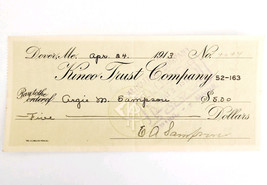 Dover, Me. Apr. 24 1913 No.
Kineo Trust Company 52-163
Pay to the order of Argie M. Sampson $5.00
Five Dollars
E A Sampson